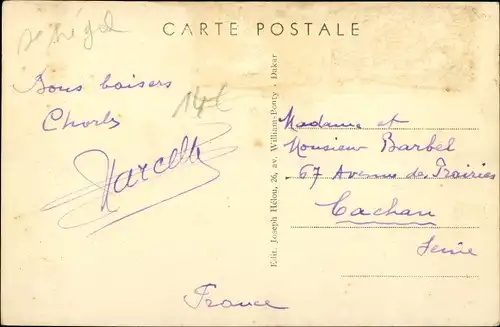 Sénégal
CARTE POSTALE
Bons baisers
Charles
Marcelle
14€
Edit. Joseph Hélou, 26, av. William-Ponty, Dakar
Madame et
Monsieur Barbel
67 Avenue des Prairies
Cachan
Seine
France